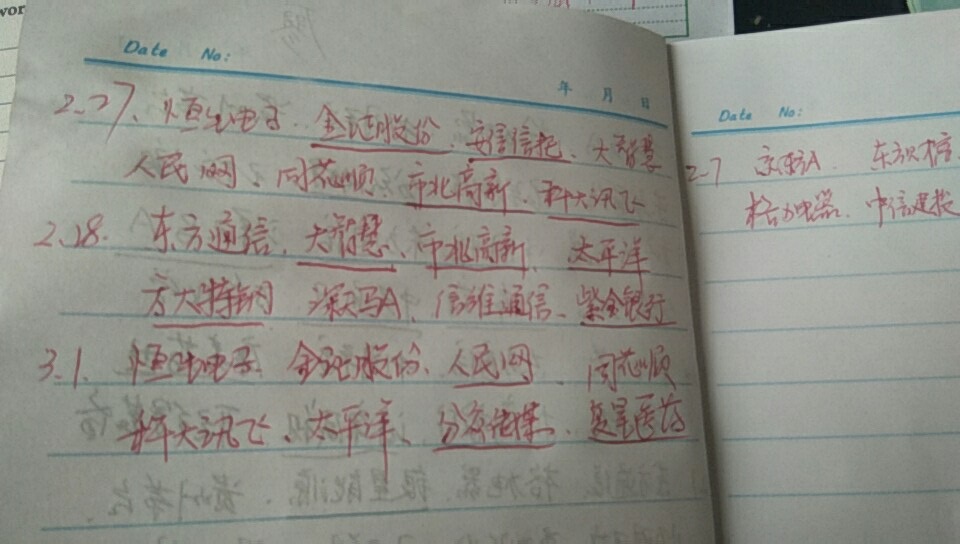 wor
Date No:
年 月 日
2.27. 恒生电子. 金证股份、安信信托、大智慧
人民网、同花顺、市北高新、科大讯飞
2.28. 东方通信、大智慧、市北高新、太平洋
方大特钢 深天马A、信维通信、紫金银行
3.1. 恒生电子. 金证股份、人民网、同花顺
科大讯飞、太平洋、分众传媒、复星医药
Date No:
2.7 京东方A
格力电器. 中信建投